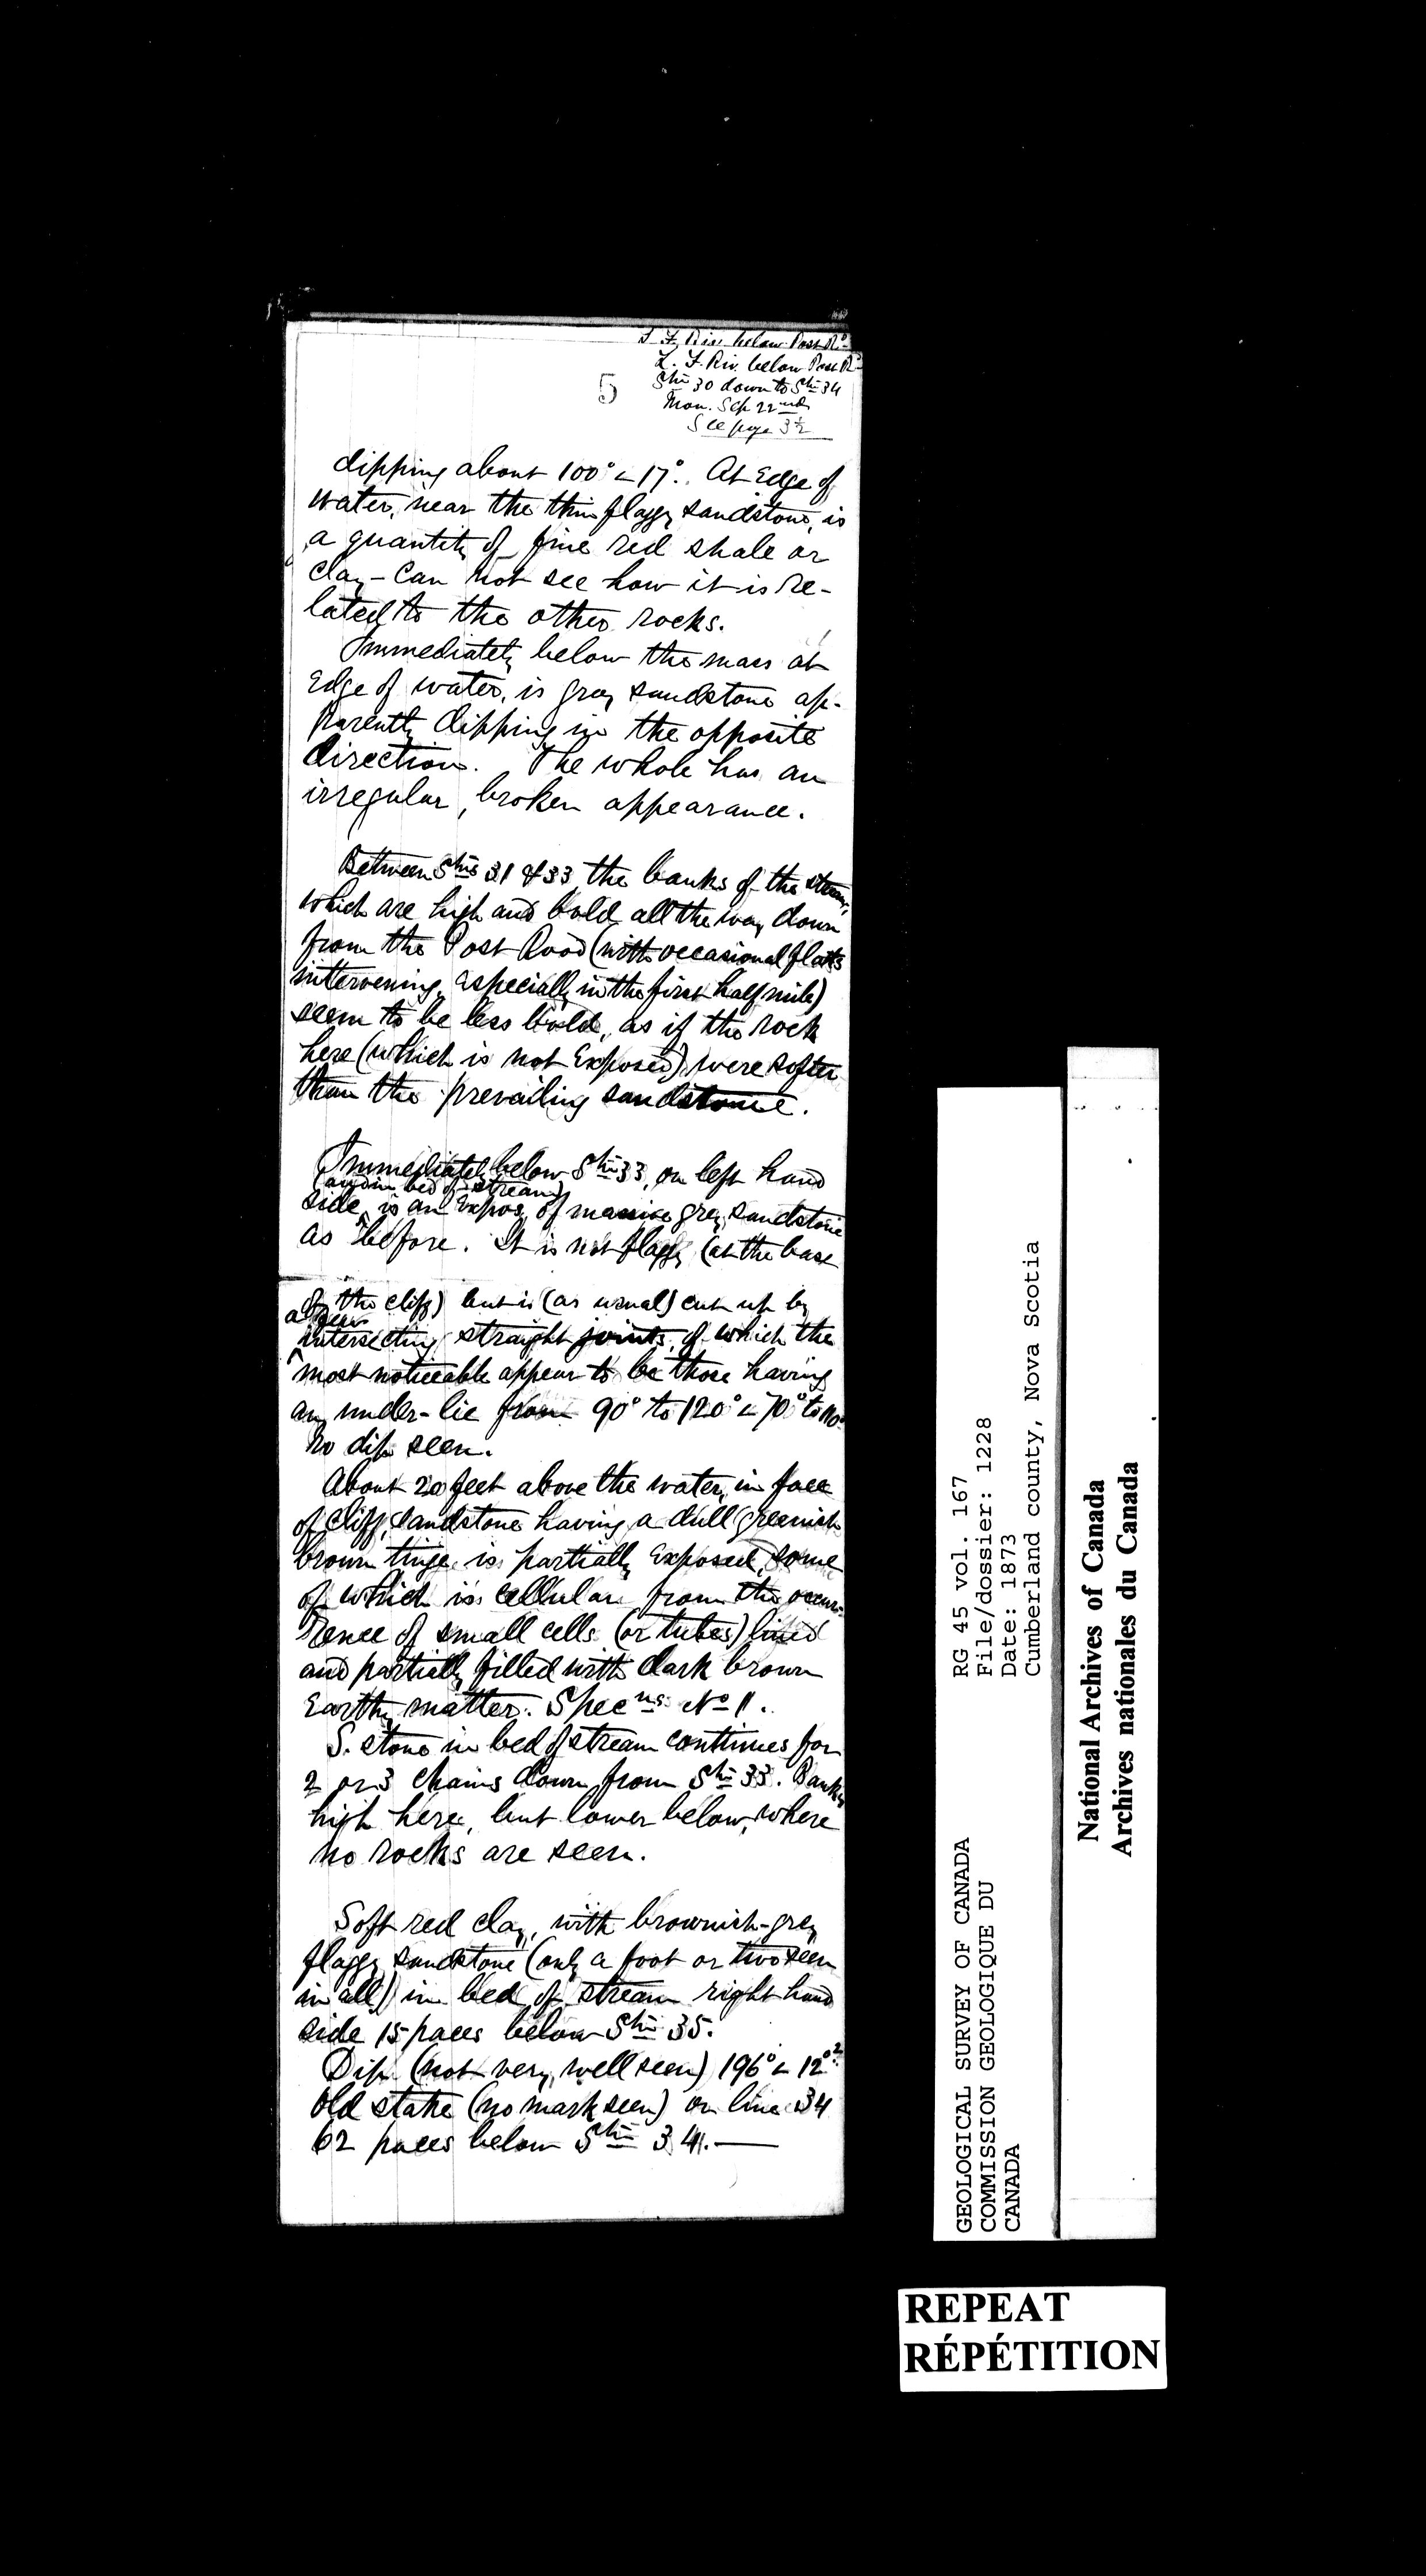 L. F. Riv. below Post Rd
L. F. Riv. below Post Rd
5
Stn 30 down to Stn 34
Mon. Sep 22nd
See page 3½
dipping about 100° ∠ 17°. At Edge of
water, near the thin flaggy sandstone, is
a quantity of fine red shale or
clay - Can not see how it is re-
lated to the other rocks.
Immediately below the mass at
Edge of water, is gray sandstone ap-
parently dipping in the opposite
direction. The whole has an
irregular, broken appearance.
Between Stns 31 & 33 the banks of the stream,
which are high and bold all the way down
from the Post Road (with occasional flats
intervening, especially in the first half mile)
seem to be less bold, as if the rock
here (which is not Exposed) were softer
than the prevailing sandstone.
Immediately below Stn 33, on left hand
(and in bed of stream)
side is an Expos. of massive grey sandstone
as before. It is not flaggy (at the base
of the cliff) but is (as usual) cut up by
intersecting straight joints, of which the
most noticeable appear to be those having
an under-lie from 90° to 120° ∠ 70° to 110°
No dip seen.
About 20 feet above the water, in face
of cliff, sandstone having a dull greenish
brown tinge is partially Exposed, some
of which is cellular from the occur-
rence of small cells (or tubes) lined
and partially filled with dark brown
Earthy matter. Specns No 11.
S. stone in bed of stream continues for
2 or 3 chains down from Stn 33. Banks
high here, but lower below, where
no rocks are seen.
Soft red clay, with brownish-grey
flaggy sandstone (only a foot or two seen
in all) in bed of stream right hand
side 15 paces below Stn 35.
Dip (not very well seen) 196° ∠ 12°?
Old stake (no mark seen) on line 34
62 paces below Stn 34.—
GEOLOGICAL SURVEY OF CANADA
COMMISSION GEOLOGIQUE DU
CANADA
RG 45 vol. 167
File/dossier: 1228
Date: 1873
Cumberland county, Nova Scotia
National Archives of Canada
Archives nationales du Canada
REPEAT
RÉPÉTITION